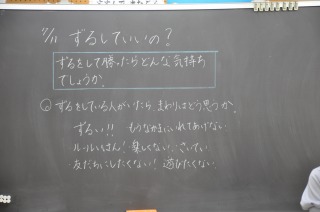 7/11 ずるしていいの?
ずるをして勝ったらどんな気持ち
でしょうか。
ずるをしている人がいたら まわりはどう思うか。
ずるい!! もうなかまにいれてあげない
ルールいはん! 楽しくない。さいてい
友だちにしたくない! 遊びたくない。